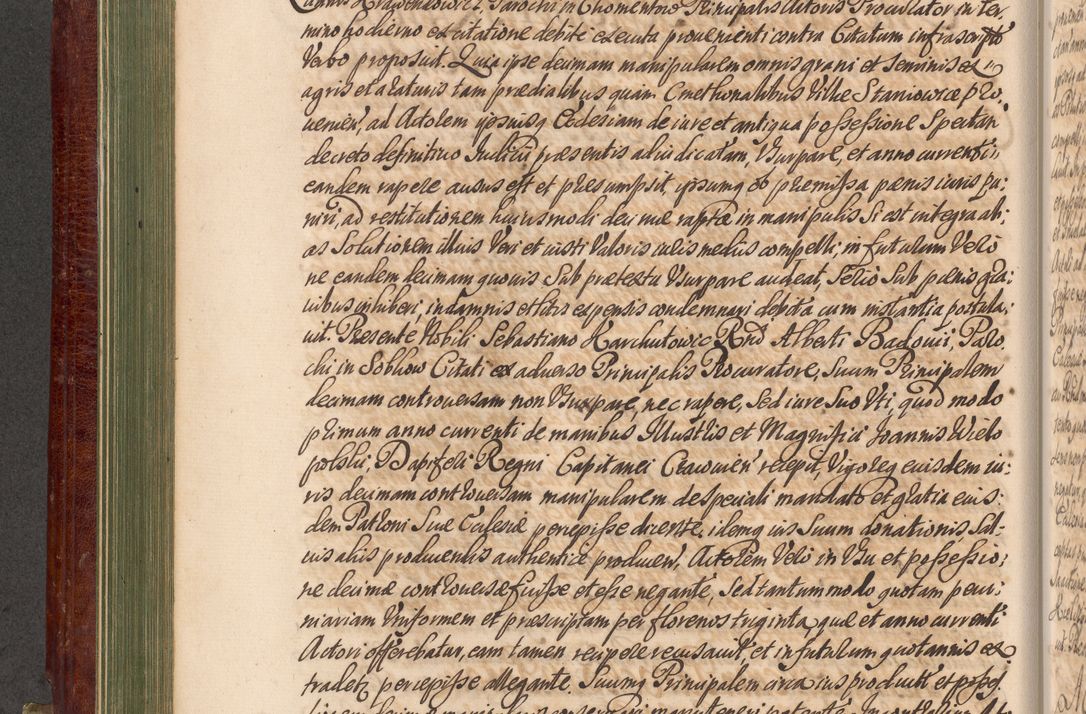 Parochi in Chomentow Principalis Actoris Procurator in ter:
mino hodierno ex citatione debite executa provenienti contra Citatum infrascripto
Verbo proposuit. Quia ipse decimam manipularem omnis grani et seminis ex
agris et araturis tam prædialibus quam Cmethonalibus Villæ Staniowice pro:
venien, ad Actorem ipsiusq Ecclesiam de iure et antiqua possessione Spectan
decreto definitivo Iudicii præsentis adiudicatam, Usurpare, et anno currenti
eandem rapere ausus est et præsumpsit, ipsumq ob præmissa pænis iuris pu:
niri, ad restitutionem huiusmodi decimæ raptæ in manipulis Si est integra ali:
as Solutionem illius Veri et iusti Valoris iuris mediis compelli, in futurum Vero
ne eandem decimam quovis Sub prætextu Usurpare audeat, Serio Sub pænis gra:
vibus inhiberi, in damnis et litis expensis condemnari debita cum instantia postula:
vit. Præsente Nobili Sebastiano Karchutowic Rnd Alberti Badowii, Paro
chi in Sobkow Citati ex adverso Principalis Procuratore, Suum Principalem
decimam controversam non Usurpare, nec rapere, Sed iure Suo Uti, quod modo
primum anno currenti de manibus Illustris et Magnifici Joannis Wielo
polskii, Dapiferi Regni Capitanei Cracovien recepit, Vigoreq eiusdem iu:
ris decimam controversam manipularem de speciali mandato et gratia eius:
dem Patroni Suæ Ecclesiæ percepisse dicente, idemq ius Suum donationis, Sal:
vis aliis producendis authentice producen, Actorem Vero in Usu et possessio:
ne decimæ controversæ fuisse et esse negante, Sed tantummodo quotam pecu:
niariam Uniformem et præscriptam per florenos triginta, quæ et anno currenti
Actori offerebatur, eam tamen recipere recusavit, et in futurum quotannis ex
tradetq percepisse allegante. Suumq Principalem circa ius producti et posses